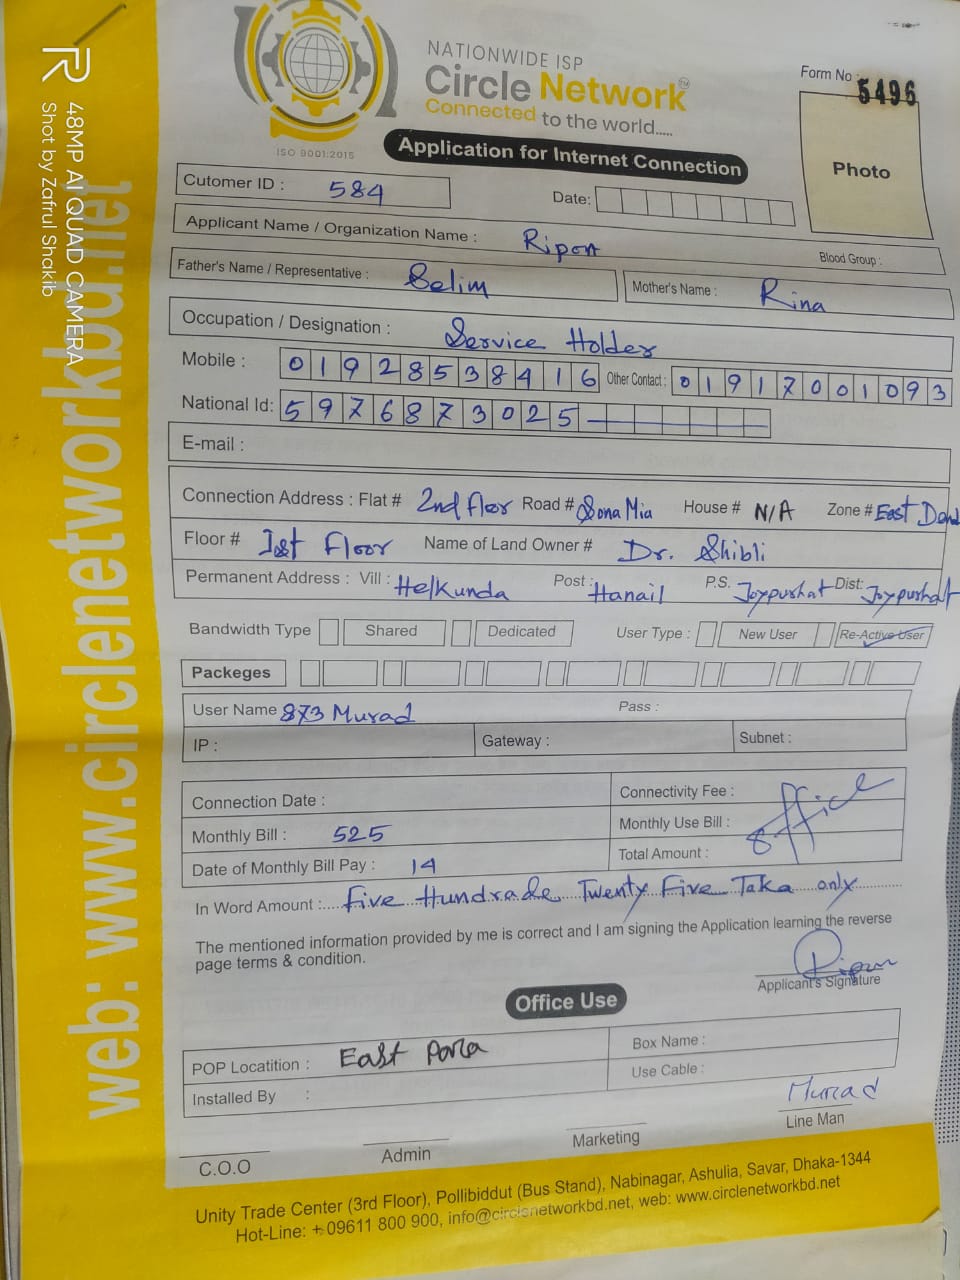 NATIONWIDE ISP
Circle Network
Connected to the world.....
ISO 9001:2015
Form No 5496
Photo
Application for Internet Connection
Cutomer ID : 584
Date:
Applicant Name / Organization Name : Ripon
Blood Group :
Father's Name / Representative : Selim
Mother's Name : Rina
Occupation / Designation : Service Holder
Mobile : 01928538416 Other Contact : 01917001093
National Id: 5976873025
E-mail :
Connection Address : Flat # 2nd floor Road # Sona Mia House # N/A Zone # East Dend
Floor # 1st Floor Name of Land Owner # Dr. Shibli
Permanent Address : Vill : Helkunda Post : Hanail P.S. Joypurhat Dist: Joypurhat
Bandwidth Type Shared Dedicated User Type : New User Re-Active User
Packeges
User Name 873 Murad Pass :
IP : Gateway : Subnet :
Connection Date : Connectivity Fee :
Monthly Bill : 525 Monthly Use Bill : office
Date of Monthly Bill Pay : 14 Total Amount :
In Word Amount :.... Five Hundrade Twenty Five Taka only
The mentioned information provided by me is correct and I am signing the Application learning the reverse
page terms & condition.
Ripon
Applicant's Signature
Office Use
POP Locatition : East Para Box Name :
Installed By : Use Cable :
Murad
C.O.O Admin Marketing Line Man
Unity Trade Center (3rd Floor), Pollibiddut (Bus Stand), Nabinagar, Ashulia, Savar, Dhaka-1344
Hot-Line: + 09611 800 900, info@circlenetworkbd.net, web: www.circlenetworkbd.net
web: www.circlenetworkbd.net
48MP AI QUAD CAMERA
Shot by Zafrul Shakib